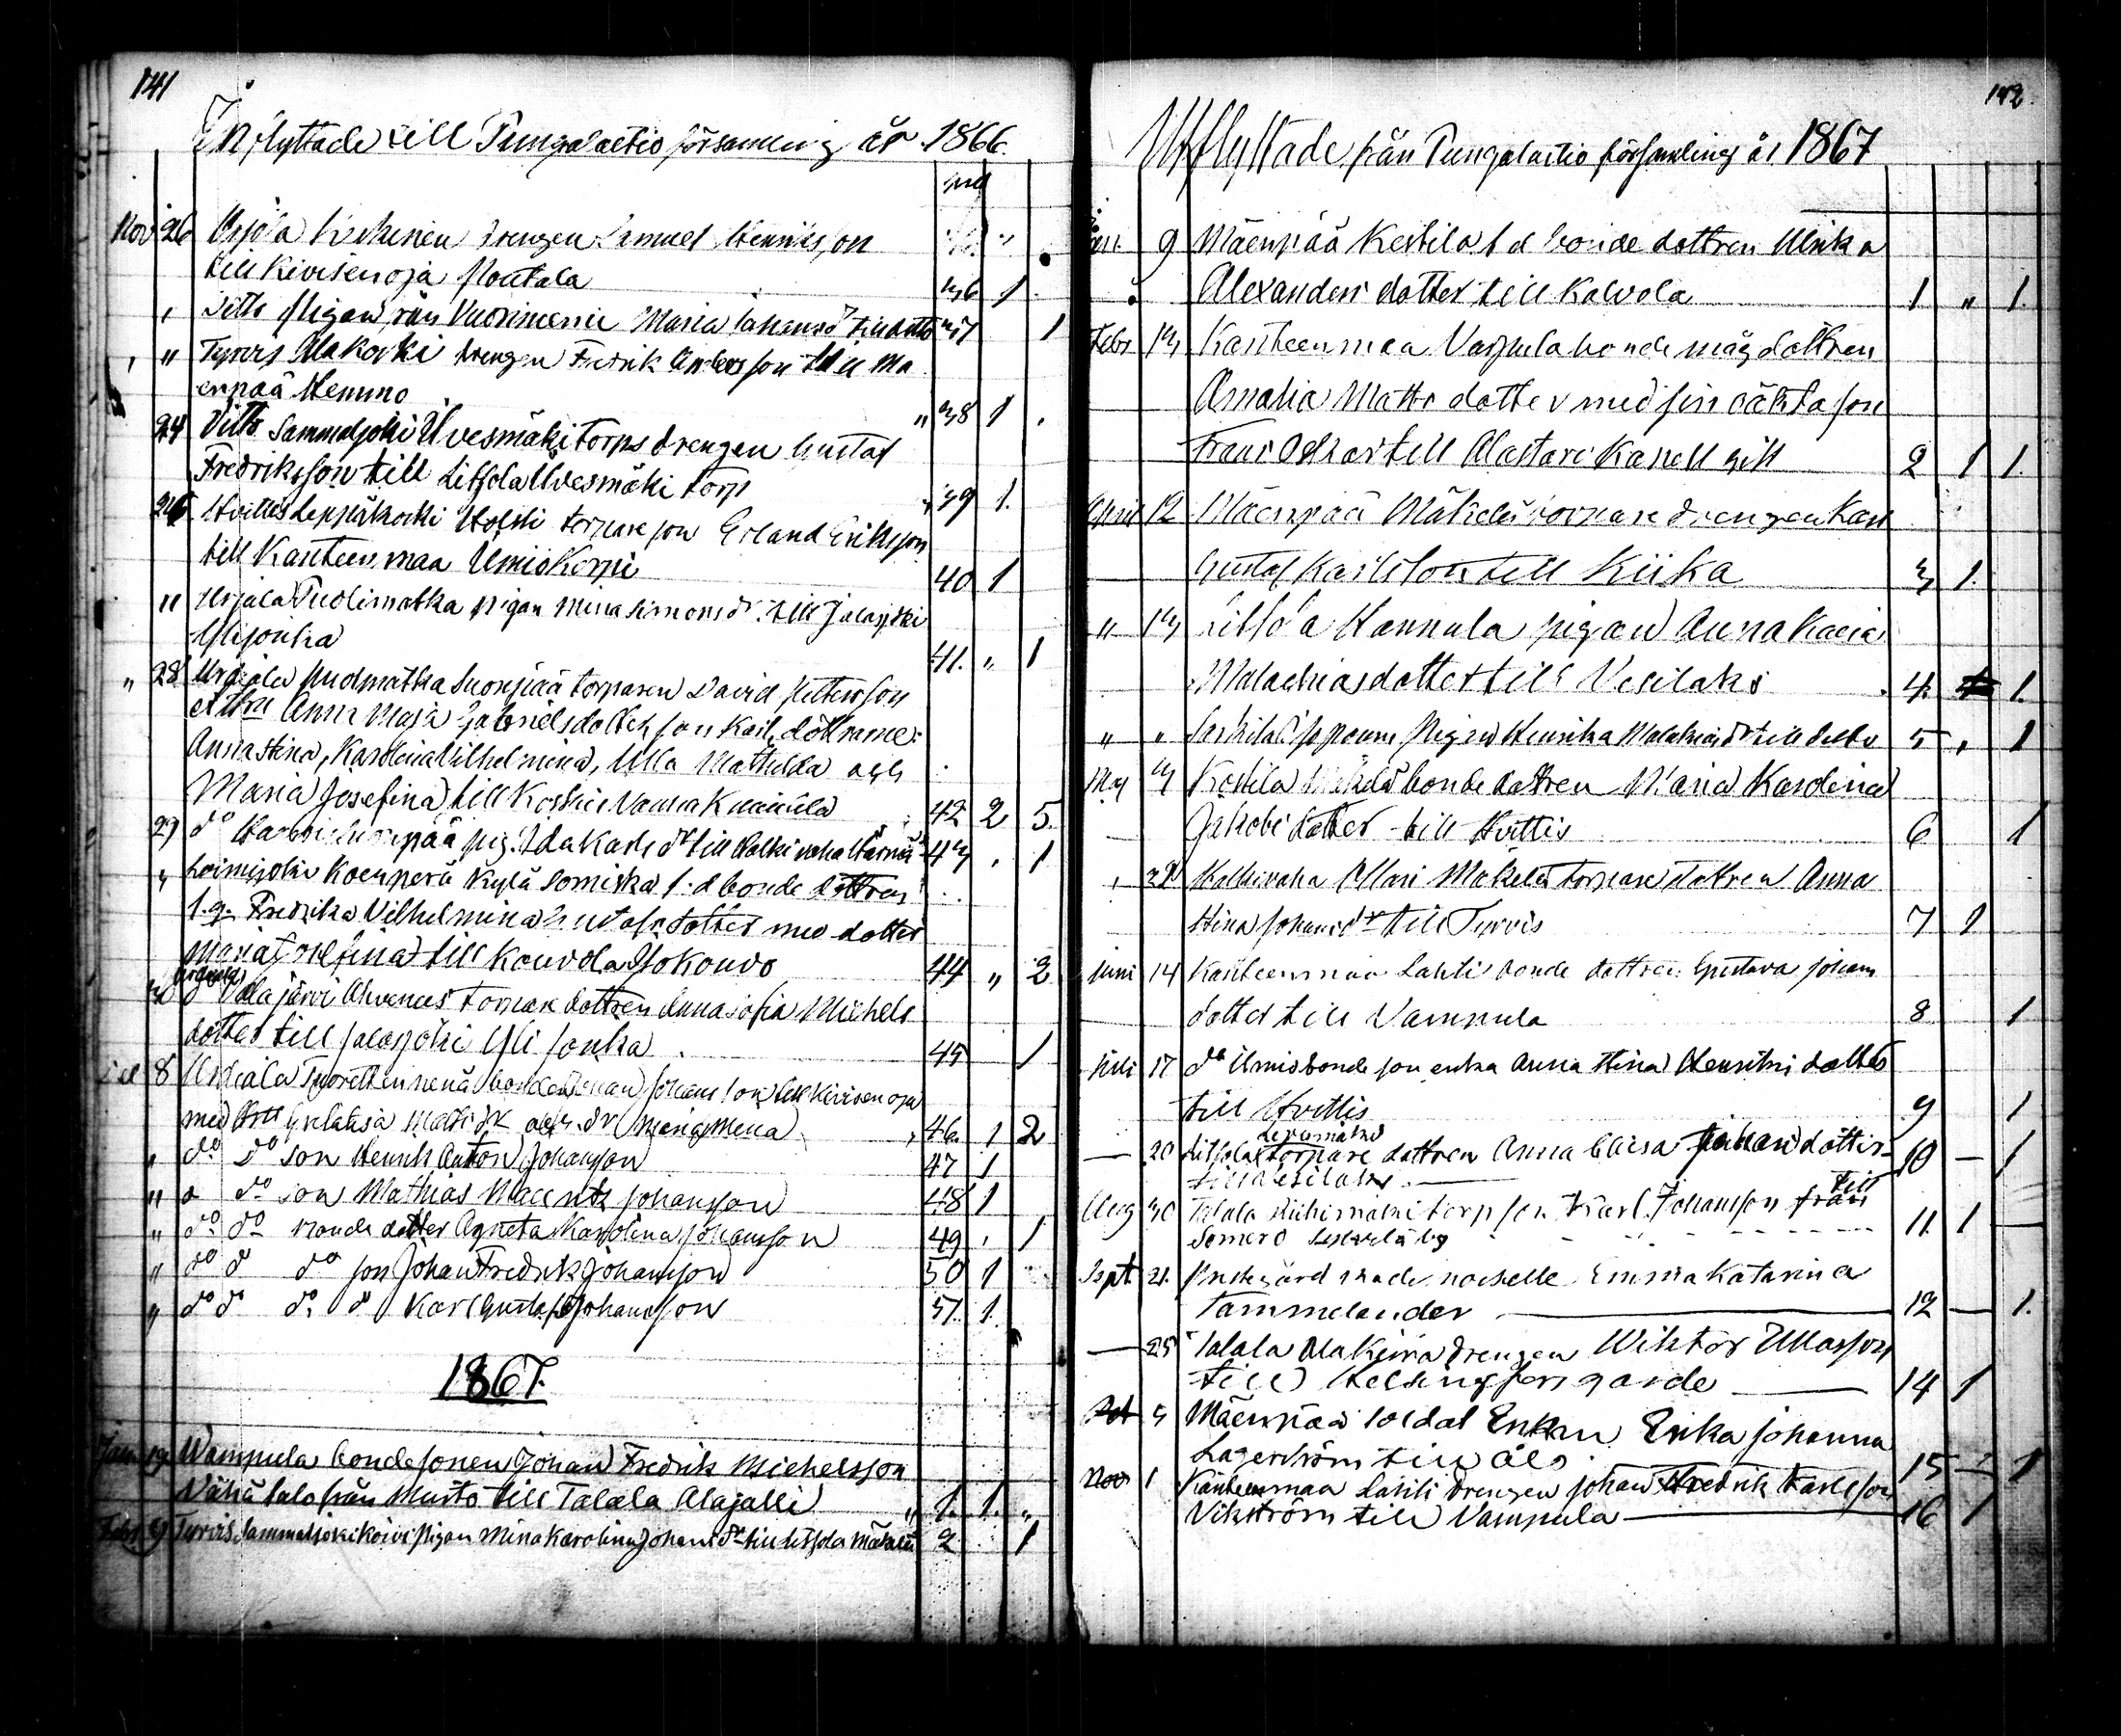 141
Inflyttade till Pungalaitio församling år 1866.
Nov 26 Urjala Kirkinen drengen Samuel Henriksson
till Kivisenoja Poutala 36 1
" ditto pigan från Vuorimenie Maria Johansdr till ditto 37 1
" " Tyrvis Alakoski drengen Fredrik Andersson till Mä
enpää Hemmo " 38 1
24 Ditto Sammaljoki Ilvesmäki torps drengen Gustaf
Fredriksson till Litsola Ilvesmäki torp " 39 1.
26 Hvittis Leppäkoski Holsti torpare son Erland Eriksson
till Kanteenmaa Umiskerpi 40 1
" Urjala Puolimatka pigan Mina Simonsdr. till Jalasjoki
Ylijouka 41. " 1
" 28 Urdiala Nuolimatka Suonpää torparen David Pettersson
Anna Maja Gabrielsdotter, son Karl, döttrarne:
Anna Stina, Karolina Vilhelmina, Ulla Mathilda och
Maria Josefina till Koskis Vanna 42 2 5.
29 do pig. Ida Karls dr till Halkivaha 43 . 1
" Loimijoki Koenperä Kylä f.d bonde dottren
Fredrika Vilhelmina Gustafs dotter med dotter
Maria Josefina till Kouvola Isokouvo 44 " 2
30 Urdiala Valajärvi Ahvenus torpare dottren Anna Sofia Michels
dotter till Jalasjoki Yli Jouka 45 1
8 Urdiala bonden Johan Johansson till Kivisenoja
med Matts dr och dr Maria Mina 46. 1 2
" do do son Henrik Anton Johansson 47 1
" do son Mathias Johansson 48 1
" do do bonde dotter Agneta Karolina Johansson 49 . 1
" do do do son Johan Fredrik Johansson 50 1
" do do do do Karl Gustaf Johansson 51. 1.
1867.
Jan 19 Wampula bondesonen Johan Fredrik Michelsson
Vähä talo från Murto till Talala Alajalli " 1. 1. "
Febr 9 Tyrvis Sammaljoki Koivi pigan Mina Karolina Johans dr till Litsola Mäkelä 2 1
142.
Utflyttade från Pungalaitio församling år 1867
Jan. 9 Mäenpää Kestilä f d bonde dottren Ulrika
Alexanders dotter till Kalvola 1 " 1.
Febr 13 Kanteenmaa Varpula bonde måg dottren
Amalia Matts dotter med sin oäkta son
Frans Oskar till Alastaro Kapell 2 1 1.
April 12 Mäenpää Mäkelä torpare drengen Karl
Gustaf Karlsson till Kiika 3 1.
" 13 Litsola Hannula pigan Anna Kaisa
Malachiasdotter till Vesilaks 4. 1.
" " pigan Henrika Malakias dr till ditto 5 , 1
Maj 3 Kostila bonde dottren Maria Karolina
Jakobs dotter till Hvittis 6 1
. 28 Halkivaha Ollari Mäkelä torpare dottren Anna
Stina Johans dr till Tyrvis 7 1
Juni 14 Kanteenmaa Lahti bonde dottren Gustava Johans
dotter till Vampula 8 1
Juli 17 do Umis bonde son enka Anna Stina Henriks dotter
till Hvittis 9 1
— 20 Litsola torpare dottren Anna Caisa Johans dotter
till Vesilaks 10 — 1
Aug 30 Talala Riihimäki torp son Karl Johansson från till
Somero by 11. 1 —
Sept. 21. Prestgård mademoiselle Emma Katarina
Tammelander 12 — 1.
— 25 Talala Alakiira drengen Wiktor Ullasson
till Helsingfors garde 14 1
Oct 5 Mäenpää soldat Enkan Erika Johanna
Lagerström till Åbo 15 — 1
Nov 1 Kanteenmaa Lahti drengen Johan Fredrik Karlsson
Vikström till Vampula 16 1